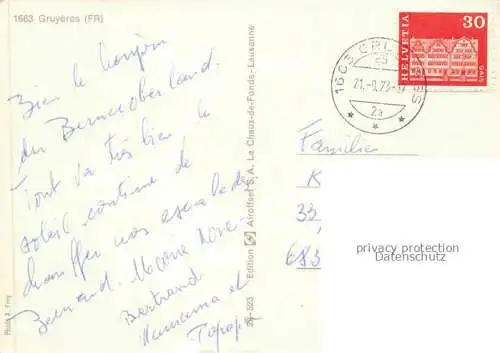 1663 Gruyères (FR)
Bien le bonjour
du Berner Oberland.
Tout va très bien, le
soleil continue de
chauffer nos escalades
Bernard. Marie
Bertrand
Mamama et
Papapa
Photo A. Frey
20-523 Edition Airoffset S.A. La Chaux-de-Fonds-Lausanne
HELVETIA
30
GAIS
1663 GRUYÈRES
2a
Famille
K
33,
683
privacy protection
Datenschutz